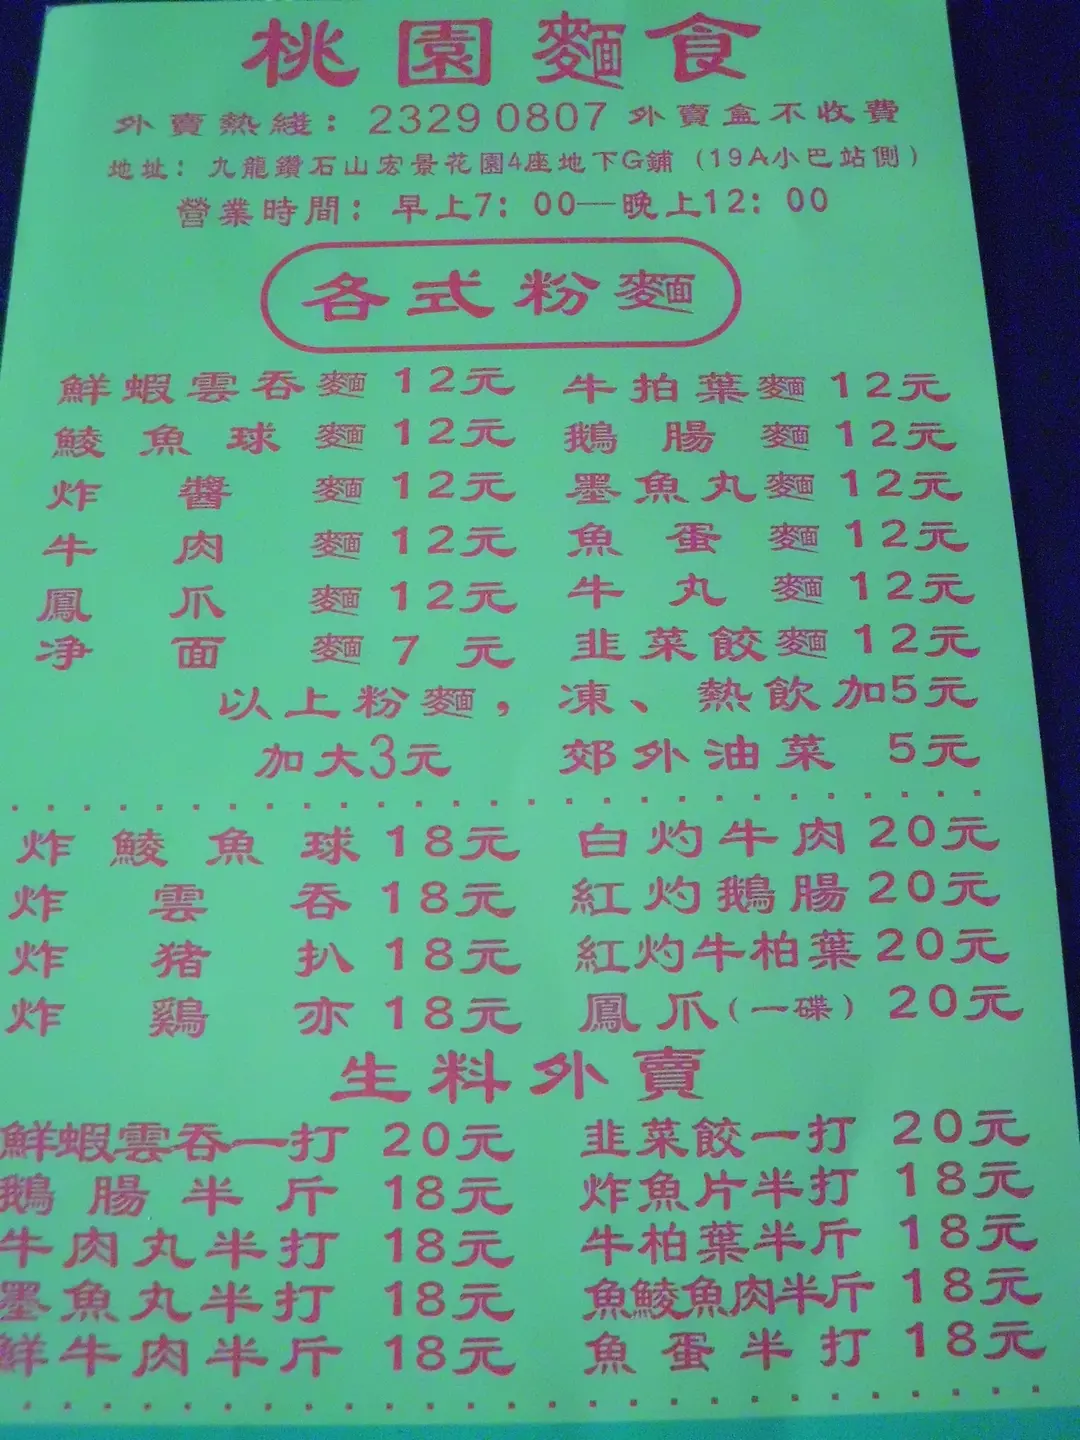 桃園麵食
外賣熱綫：2329 0807 外賣盒不收費
地址：九龍鑽石山宏景花園4座地下G鋪（19A小巴站側）
營業時間：早上7：00—晚上12：00
各式粉麵
鮮蝦雲吞麵 12元 牛拍葉麵 12元
鯪魚球麵 12元 鵝腸麵 12元
炸醬麵 12元 墨魚丸麵 12元
牛肉麵 12元 魚蛋麵 12元
鳳爪麵 12元 牛丸麵 12元
凈面麵 7元 韭菜餃麵 12元
以上粉麵，凍、熱飲加5元
加大3元 郊外油菜 5元
炸鯪魚球 18元 白灼牛肉 20元
炸雲吞 18元 紅灼鵝腸 20元
炸猪扒 18元 紅灼牛柏葉 20元
炸鷄亦 18元 鳳爪（一碟）20元
生料外賣
鮮蝦雲吞一打 20元 韭菜餃一打 20元
鵝腸半斤 18元 炸魚片半打 18元
牛肉丸半打 18元 牛柏葉半斤 18元
墨魚丸半打 18元 魚鯪魚肉半斤 18元
鮮牛肉半斤 18元 魚蛋半打 18元